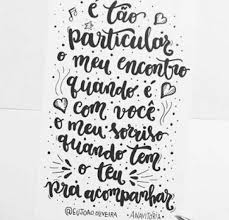 é tão
particular
o meu encontro
quando é
com você
o meu sorriso
quando tem
o teu
pra acompanhar
@EUJOAOOLIVEIRA - ANAVITÓRIA -